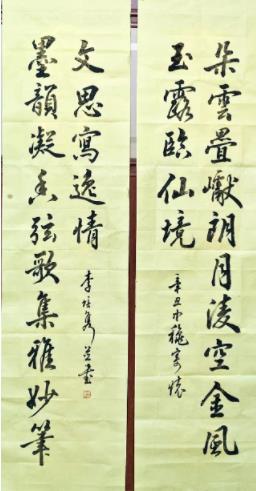 朵雲疊巘朗月淩空金風
玉露臨仙境
辛丑中穐寄懷
墨韻凝香弦歌集雅妙筆
文思寫逸情
李 並書